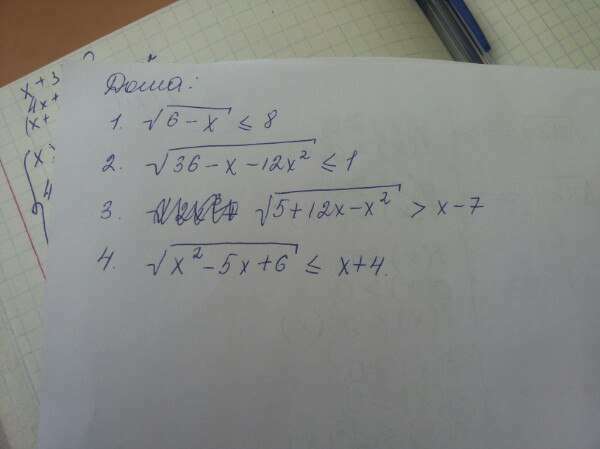 Дома:
1. √(6 - x) ≤ 8
2. √(36 - x - 12x²) ≤ 1
3. √(5 + 12x - x²) > x - 7
4. √(x² - 5x + 6) ≤ x + 4.
x + 3
4x +
(x +
4